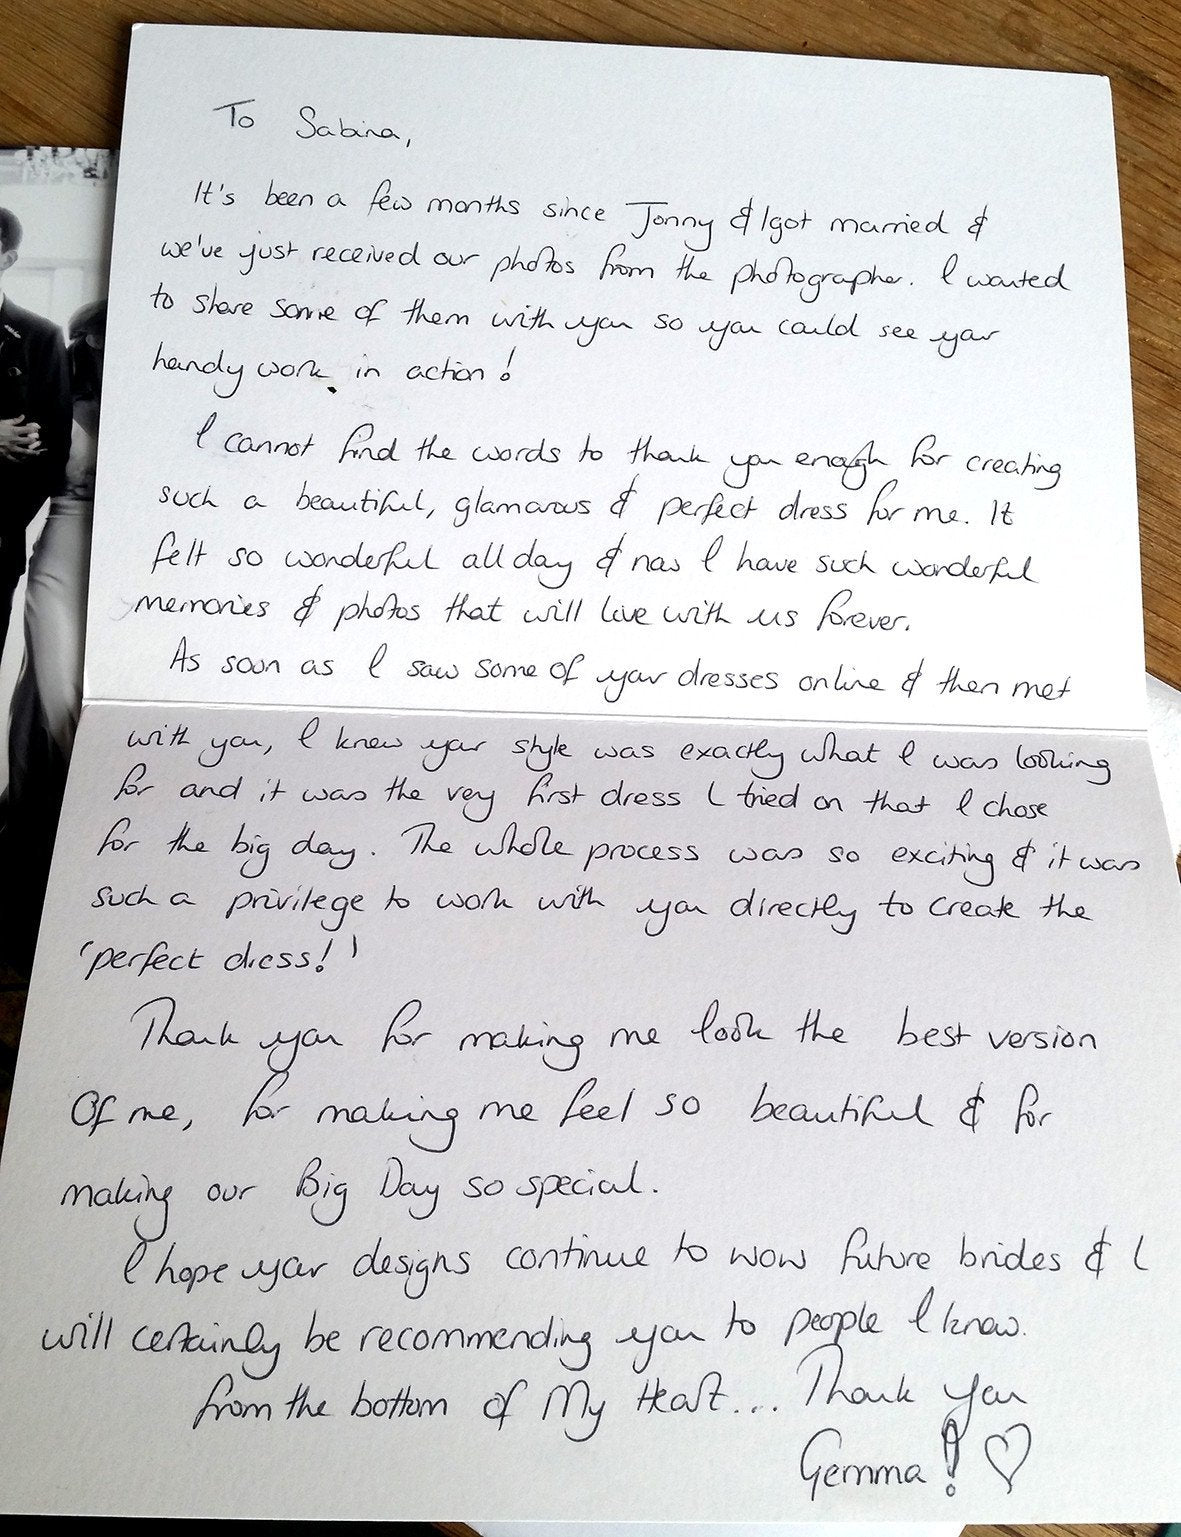 To Sabina,
It's been a few months since Jonny & I got married &
we've just received our photos from the photographer. I wanted
to share some of them with you so you could see your
handy work in action!
I cannot find the words to thank you enough for creating
such a beautiful, glamorous & perfect dress for me. It
felt so wonderful all day & now I have such wonderful
memories & photos that will live with us forever.
As soon as I saw some of your dresses online & then met
with you, I knew your style was exactly what I was looking
for and it was the very first dress I tried on that I chose
for the big day. The whole process was so exciting & it was
such a privilege to work with you directly to create the
'perfect dress!'
Thank you for making me look the best version
Of me, for making me feel so beautiful & for
making our Big Day so special.
I hope your designs continue to wow future brides & I
will certainly be recommending you to people I know.
from the bottom of My Heart... Thank you!
Gemma ♡